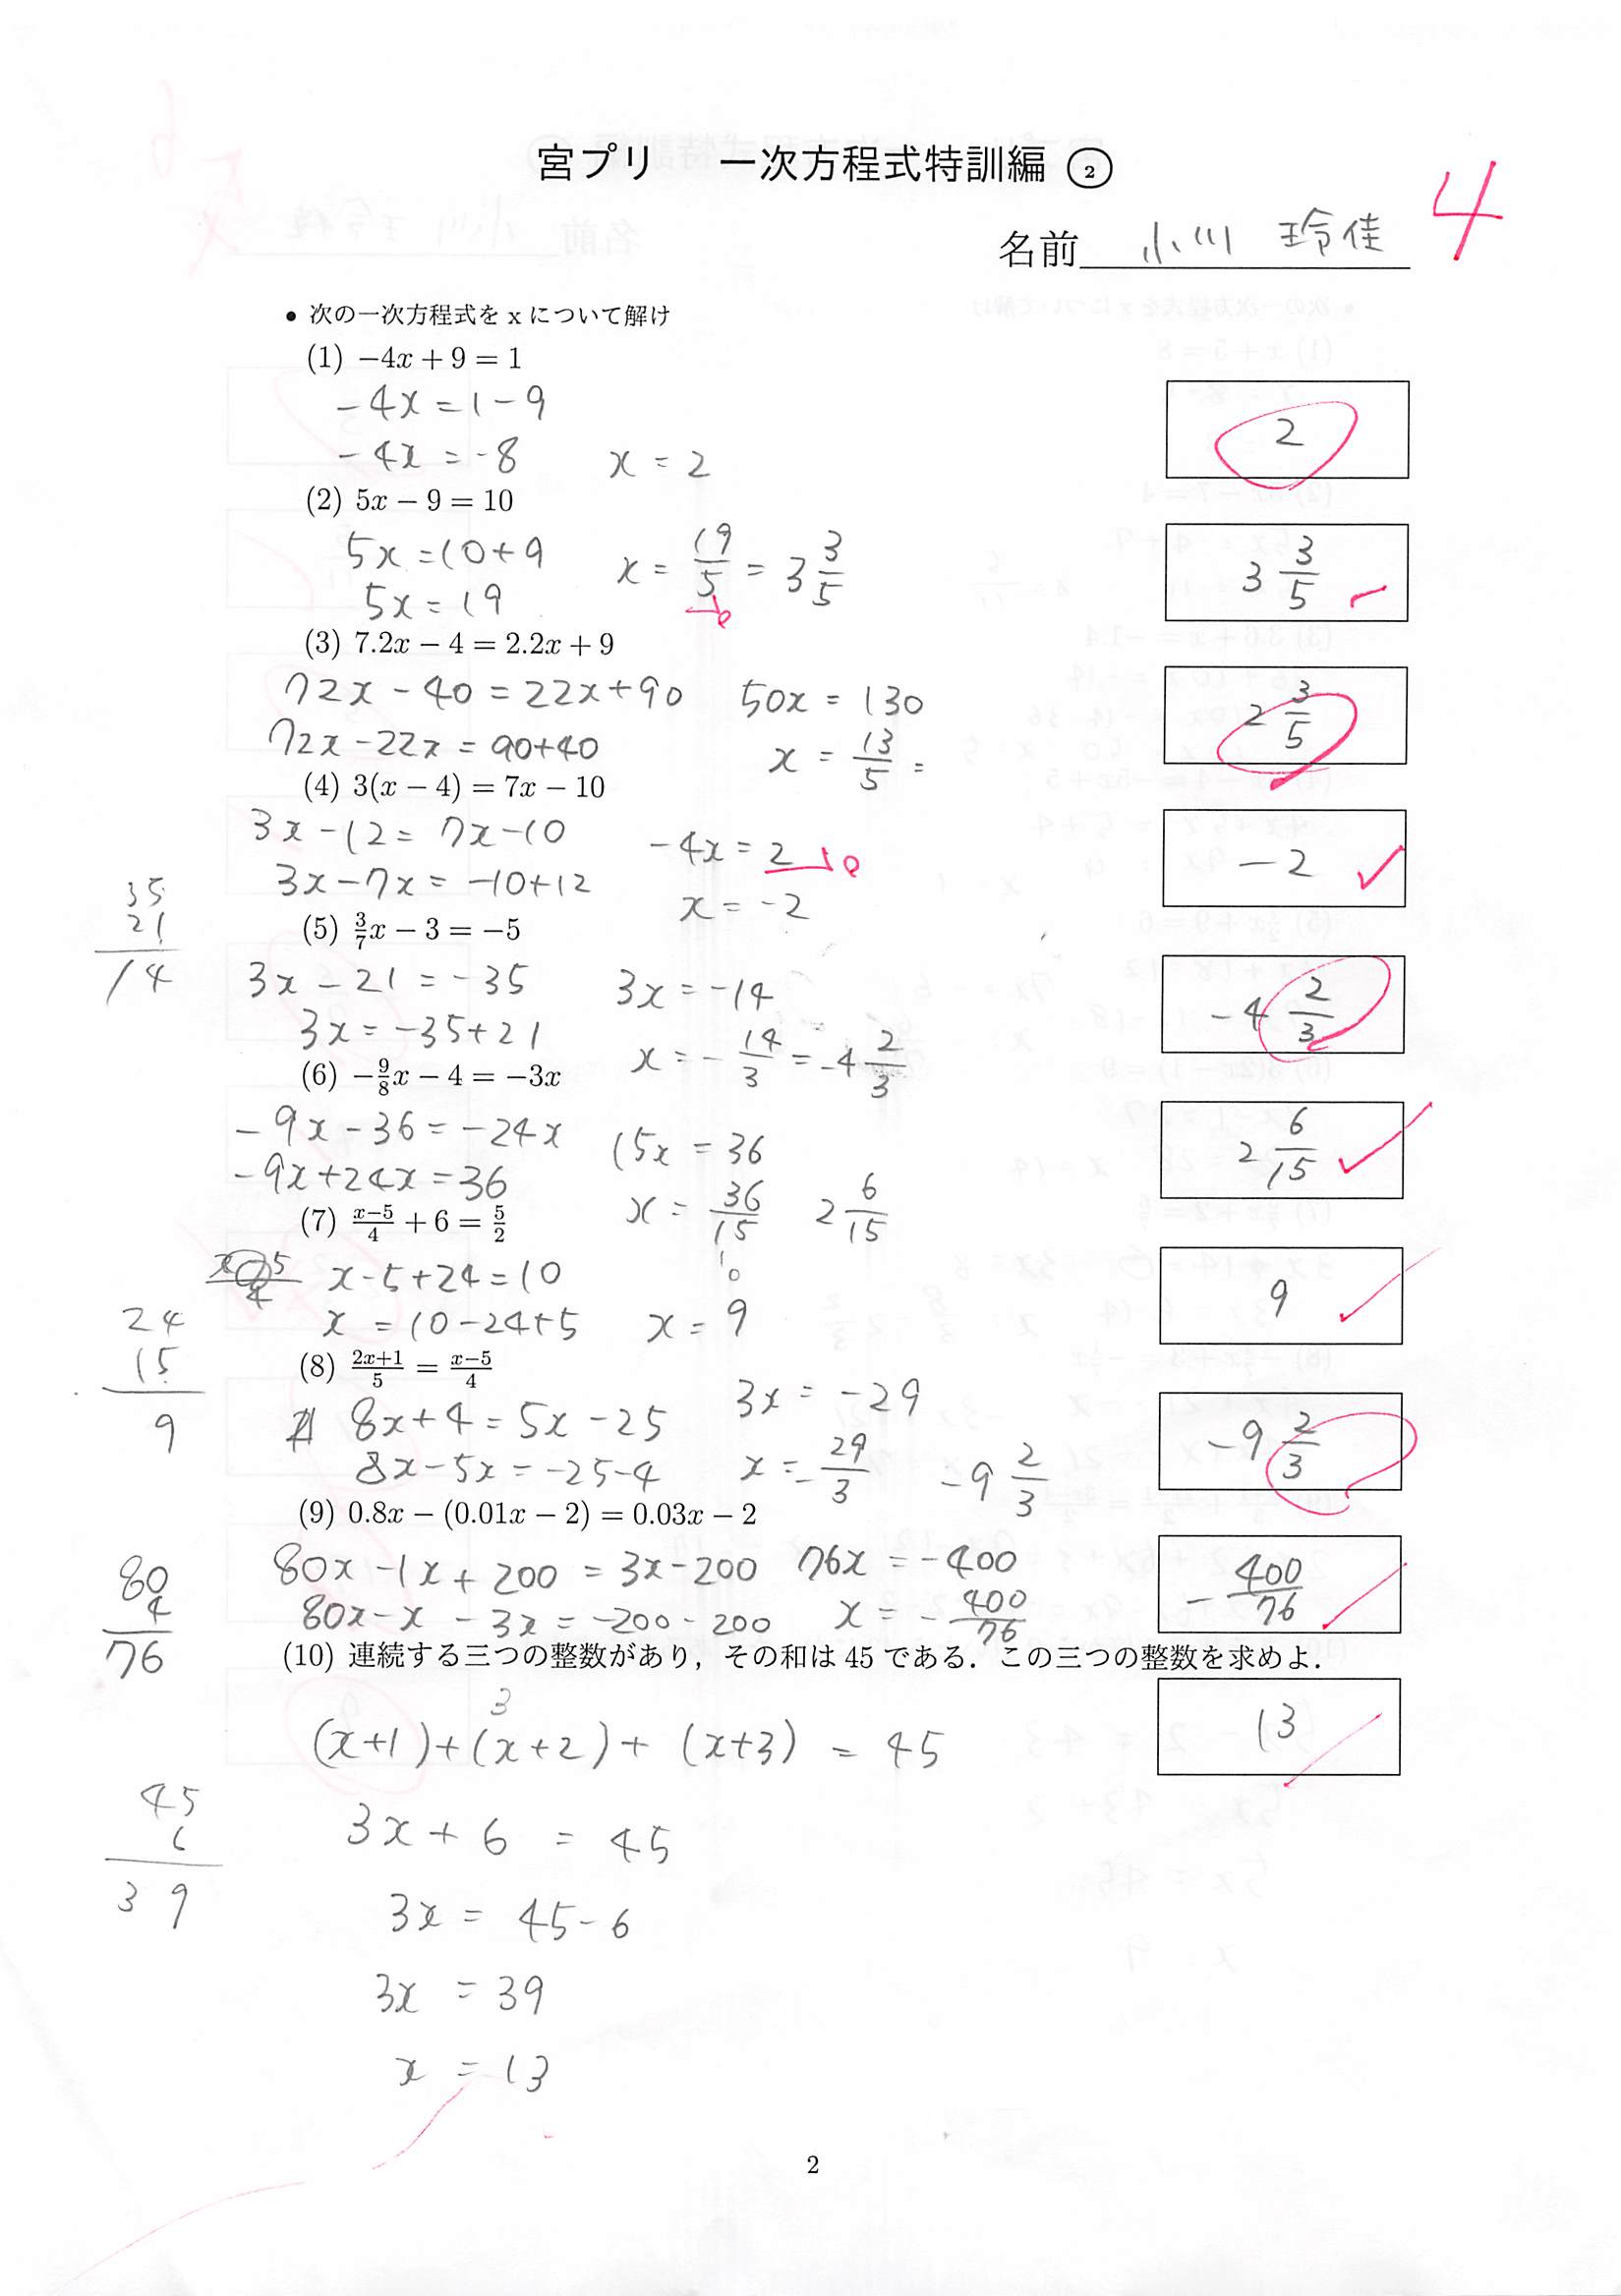 宮プリ 一次方程式特訓編 ②
4
名前 小川 玲佳
• 次の一次方程式を x について解け
(1) −4x + 9 = 1
-4x = 1-9
-4x = -8 x = 2
2
(2) 5x − 9 = 10
5x = 10+9
5x = 19
x = 19/5 = 3 3/5
3 3/5
(3) 7.2x − 4 = 2.2x + 9
72x - 40 = 22x+90 50x = 130
72x-22x = 90+40 x = 13/5 =
2 3/5
(4) 3(x − 4) = 7x − 10
3x-12 = 7x-10 -4x = 2
3x-7x = -10+12 x = -2
-2
35
21
14
(5) 3/7x − 3 = −5
3x - 21 = -35 3x = -14
3x = -35+21 x = - 14/3 = -4 2/3
-4 2/3
(6) −9/8x − 4 = −3x
-9x-36 = -24x 15x = 36
-9x+24x = 36 x = 36/15 2 6/15
2 6/15
(7) x−5/4 + 6 = 5/2
x-5+24 = 10
x = 10-24+5 x = 9
9
24
15
9
(8) 2x+1/5 = x−5/4
8x+4 = 5x-25 3x = -29
8x-5x = -25-4 x = - 29/3 -9 2/3
-9 2/3
(9) 0.8x − (0.01x − 2) = 0.03x − 2
80x-1x+200 = 3x-200 76x = -400
80x-x-3x = -200-200 x = - 400/76
- 400/76
80
4
76
(10) 連続する三つの整数があり，その和は 45 である．この三つの整数を求めよ．
3
(x+1)+(x+2)+(x+3) = 45
13
45
6
39
3x+6 = 45
3x = 45-6
3x = 39
x = 13
2